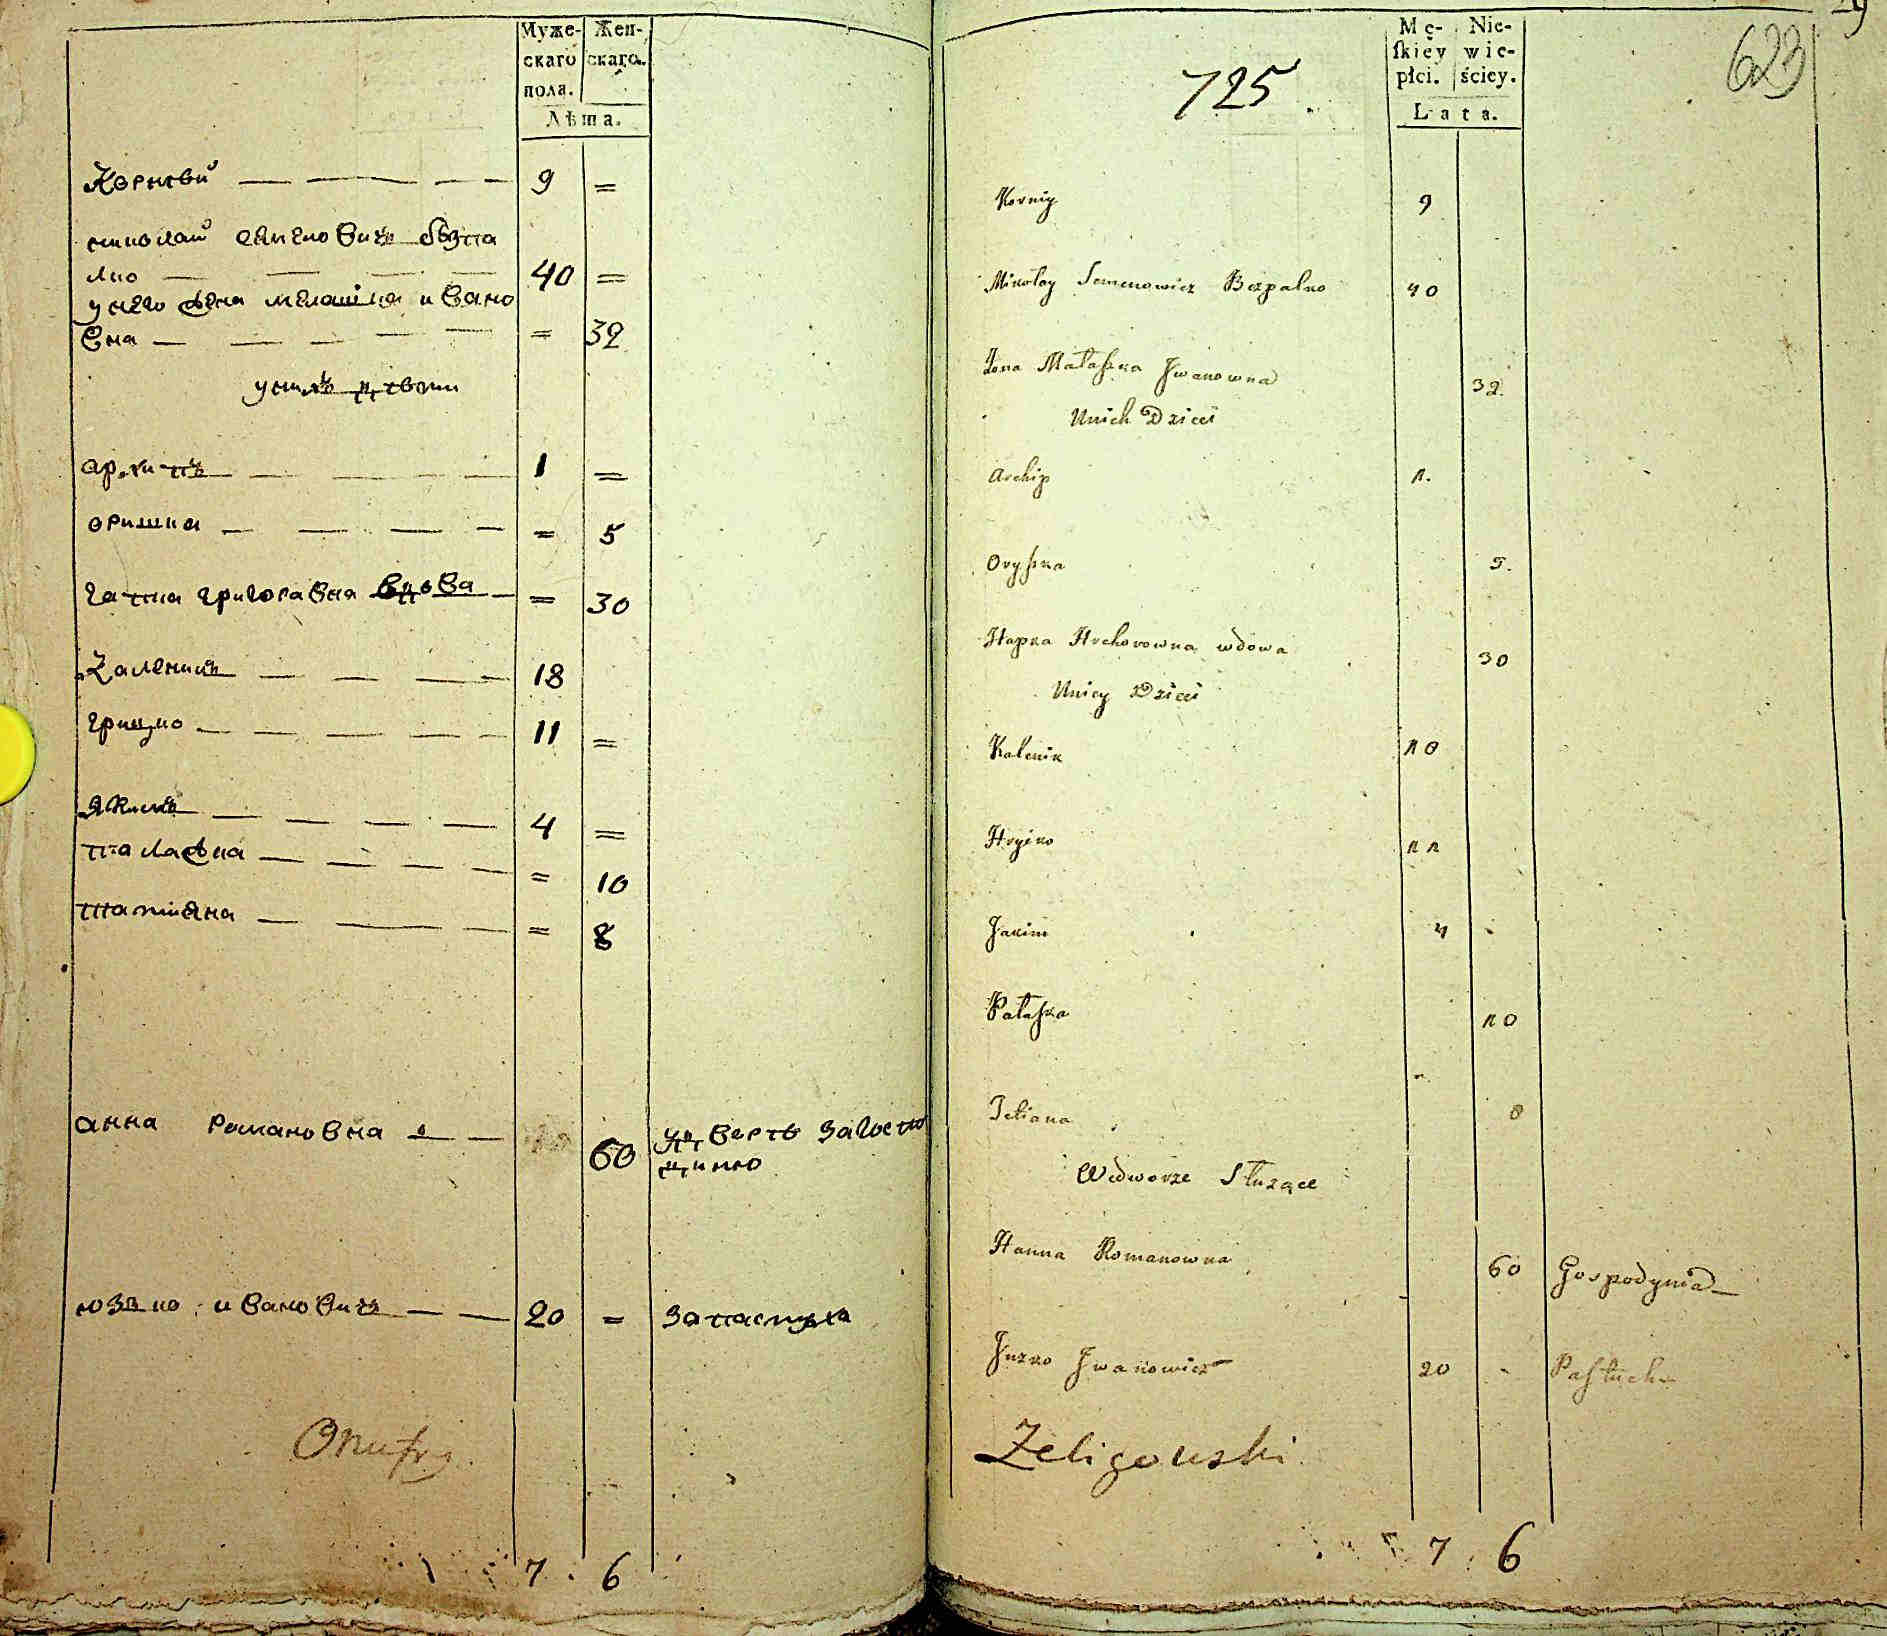 Муже-
скаго
пола.
Жен-
скаго.
Лѣта.
Корнѣй 9 =
николай семено вичъ безпа
лко 40 =
у него жена мелашка ивано
вна = 32
у нихъ дѣти
архипъ 1 =
оришка = 5
гапка григоравна вдова = 30
Каленикъ 18
грицко 11 =
Якимъ 4 =
палажка = 10
татияна = 8
анна романовна 60
юзко ивановичъ 20 = за пастуха
Onufry
7 . 6
29
623
725.
Mę-
ſkiey
płci.
Nie-
wie-
ściey.
Lata.
Korniy 9
Mikołay Semenowicz Bezpalko 40
Żona Małaſzka Jwanowna 32.
Unich Dzieci
Archip 1.
Oryſzka 5.
Hapka Hrehorowna wdowa 30
Unicy Dzieci
Kalenik 18
Hryćko 11
Jakim 4
Pałaſzka 10
Tetiana 8
Wedworze Służące
Hanna Romanowna 60 Gospodynia
Juzko Jwanowicz 20 - Paſtuch
Zeligowski
7 . 6